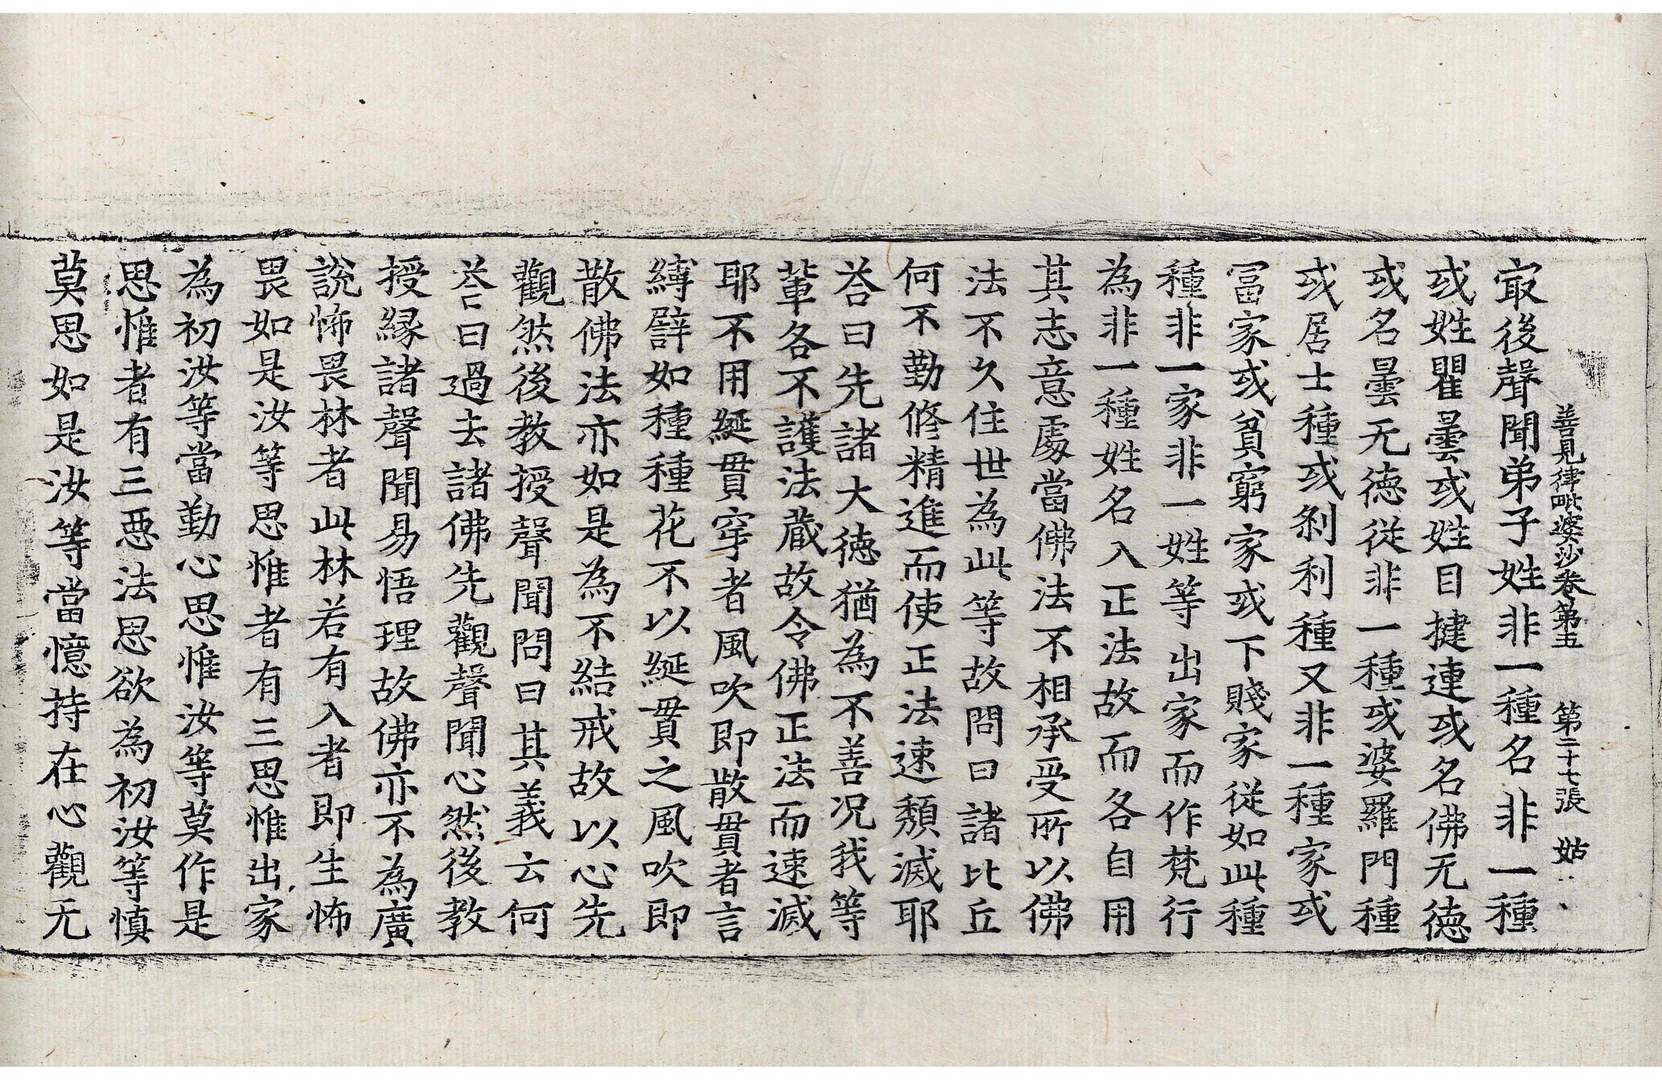 善見律毗婆沙卷第五　第二十七張　姑
㝡後聲聞弟子姓非一種名非一種
或姓瞿曇或姓目揵連或名佛无德
或名曇无德從非一種或婆羅門種
或居士種或刹利種又非一種家或
冨家或貧窮家或下賤家從如此種
種非一家非一姓等出家而作梵行
為非一種姓名入正法故而各自用
其志意處當佛法不相承受所以佛
法不久住世為此等故問曰諸比丘
何不勤修精進而使正法速頽滅耶
荅曰先諸大德猶為不善况我等
輩各不護法藏故令佛正法而速滅
耶不用綖貫穿者風吹即散貫者言
縛譬如種種花不以綖貫之風吹即
散佛法亦如是為不結戒故以心先
觀然後教授聲聞問曰其義云何
荅曰過去諸佛先觀聲聞心然後教
授緣諸聲聞易悟理故佛亦不為廣
說怖畏林者此林若有入者即生怖
畏如是汝等思惟者有三思惟出家
為初汝等當勤心思惟汝等莫作是
思惟者有三惡法思欲為初汝等慎
莫思如是汝等當憶持在心觀无